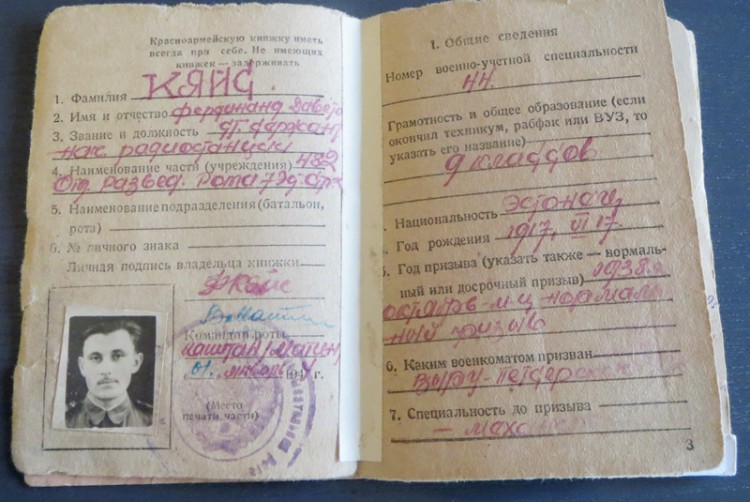 Красноармейскую книжку иметь
всегда при себе. Не имеющих
книжек — задерживать
1. Фамилия КЯЙС
2. Имя и отчество Фердинанд
3. Звание и должность ст. сержант
нач. радиостанции
4. Наименование части (учреждения) 482
Отд. развед. рота
5. Наименование подразделения (батальон,
рота)
6. № личного знака
Личная подпись владельца книжки
ФКяйс
Командир роты
капитан
01. 194 г.
(Место
печати части)
I. Общие сведения
Номер военно-учетной специальности
44.
Грамотность и общее образование (если
окончил техникум, рабфак или ВУЗ, то
указать его название)
9 классов
Национальность Эстонец
Год рождения 1917, VI 17.
Год призыва (указать также — нормаль-
ный или досрочный призыв) 1938 г.
октябрь м-ц нормаль
ный призыв
6. Каким военкоматом призван
Выру-
7. Специальность до призыва
3